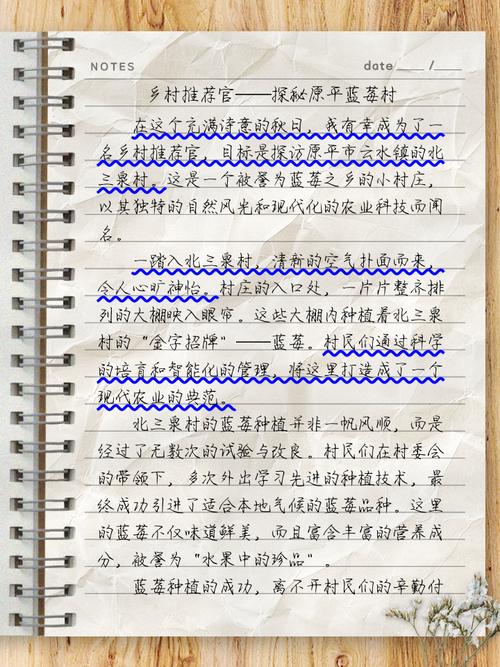 NOTES
date____/____
乡村推荐官——探秘原平蓝莓村
在这个充满诗意的秋日，我有幸成为了一
名乡村推荐官，目标是探访原平市云水镇的北
三泉村。这是一个被誉为蓝莓之乡的小村庄，
以其独特的自然风光和现代化的农业科技而闻
名。
一踏入北三泉村，清新的空气扑面而来，
令人心旷神怡。村庄的入口处，一片片整齐排
列的大棚映入眼帘。这些大棚内种植着北三泉
村的“金字招牌”——蓝莓。村民们通过科学
的培育和智能化的管理，将这里打造成了一个
现代农业的典范。
北三泉村的蓝莓种植并非一帆风顺，而是
经过了无数次的试验与改良。村民们在村委会
的带领下，多次外出学习先进的种植技术，最
终成功引进了适合本地气候的蓝莓品种。这里
的蓝莓不仅味道鲜美，而且富含丰富的营养成
分，被誉为“水果中的珍品”。
蓝莓种植的成功，离不开村民们的辛勤付